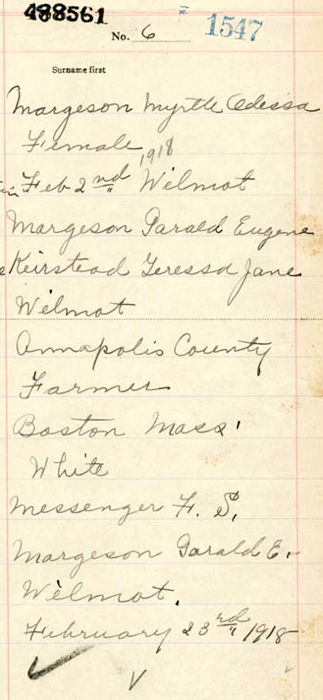 488561
No. 6 1547
Surname first
Margeson Myrtle Odessa
Female
1918
Feb 2nd Wilmot
Margeson Garald Eugene
Keirstead Teressa Jane
Wilmot
Annapolis County
Farmer
Boston Mass.
White
Messenger F. S.
Margeson Garald E.
Wilmot.
February 23rd 1918